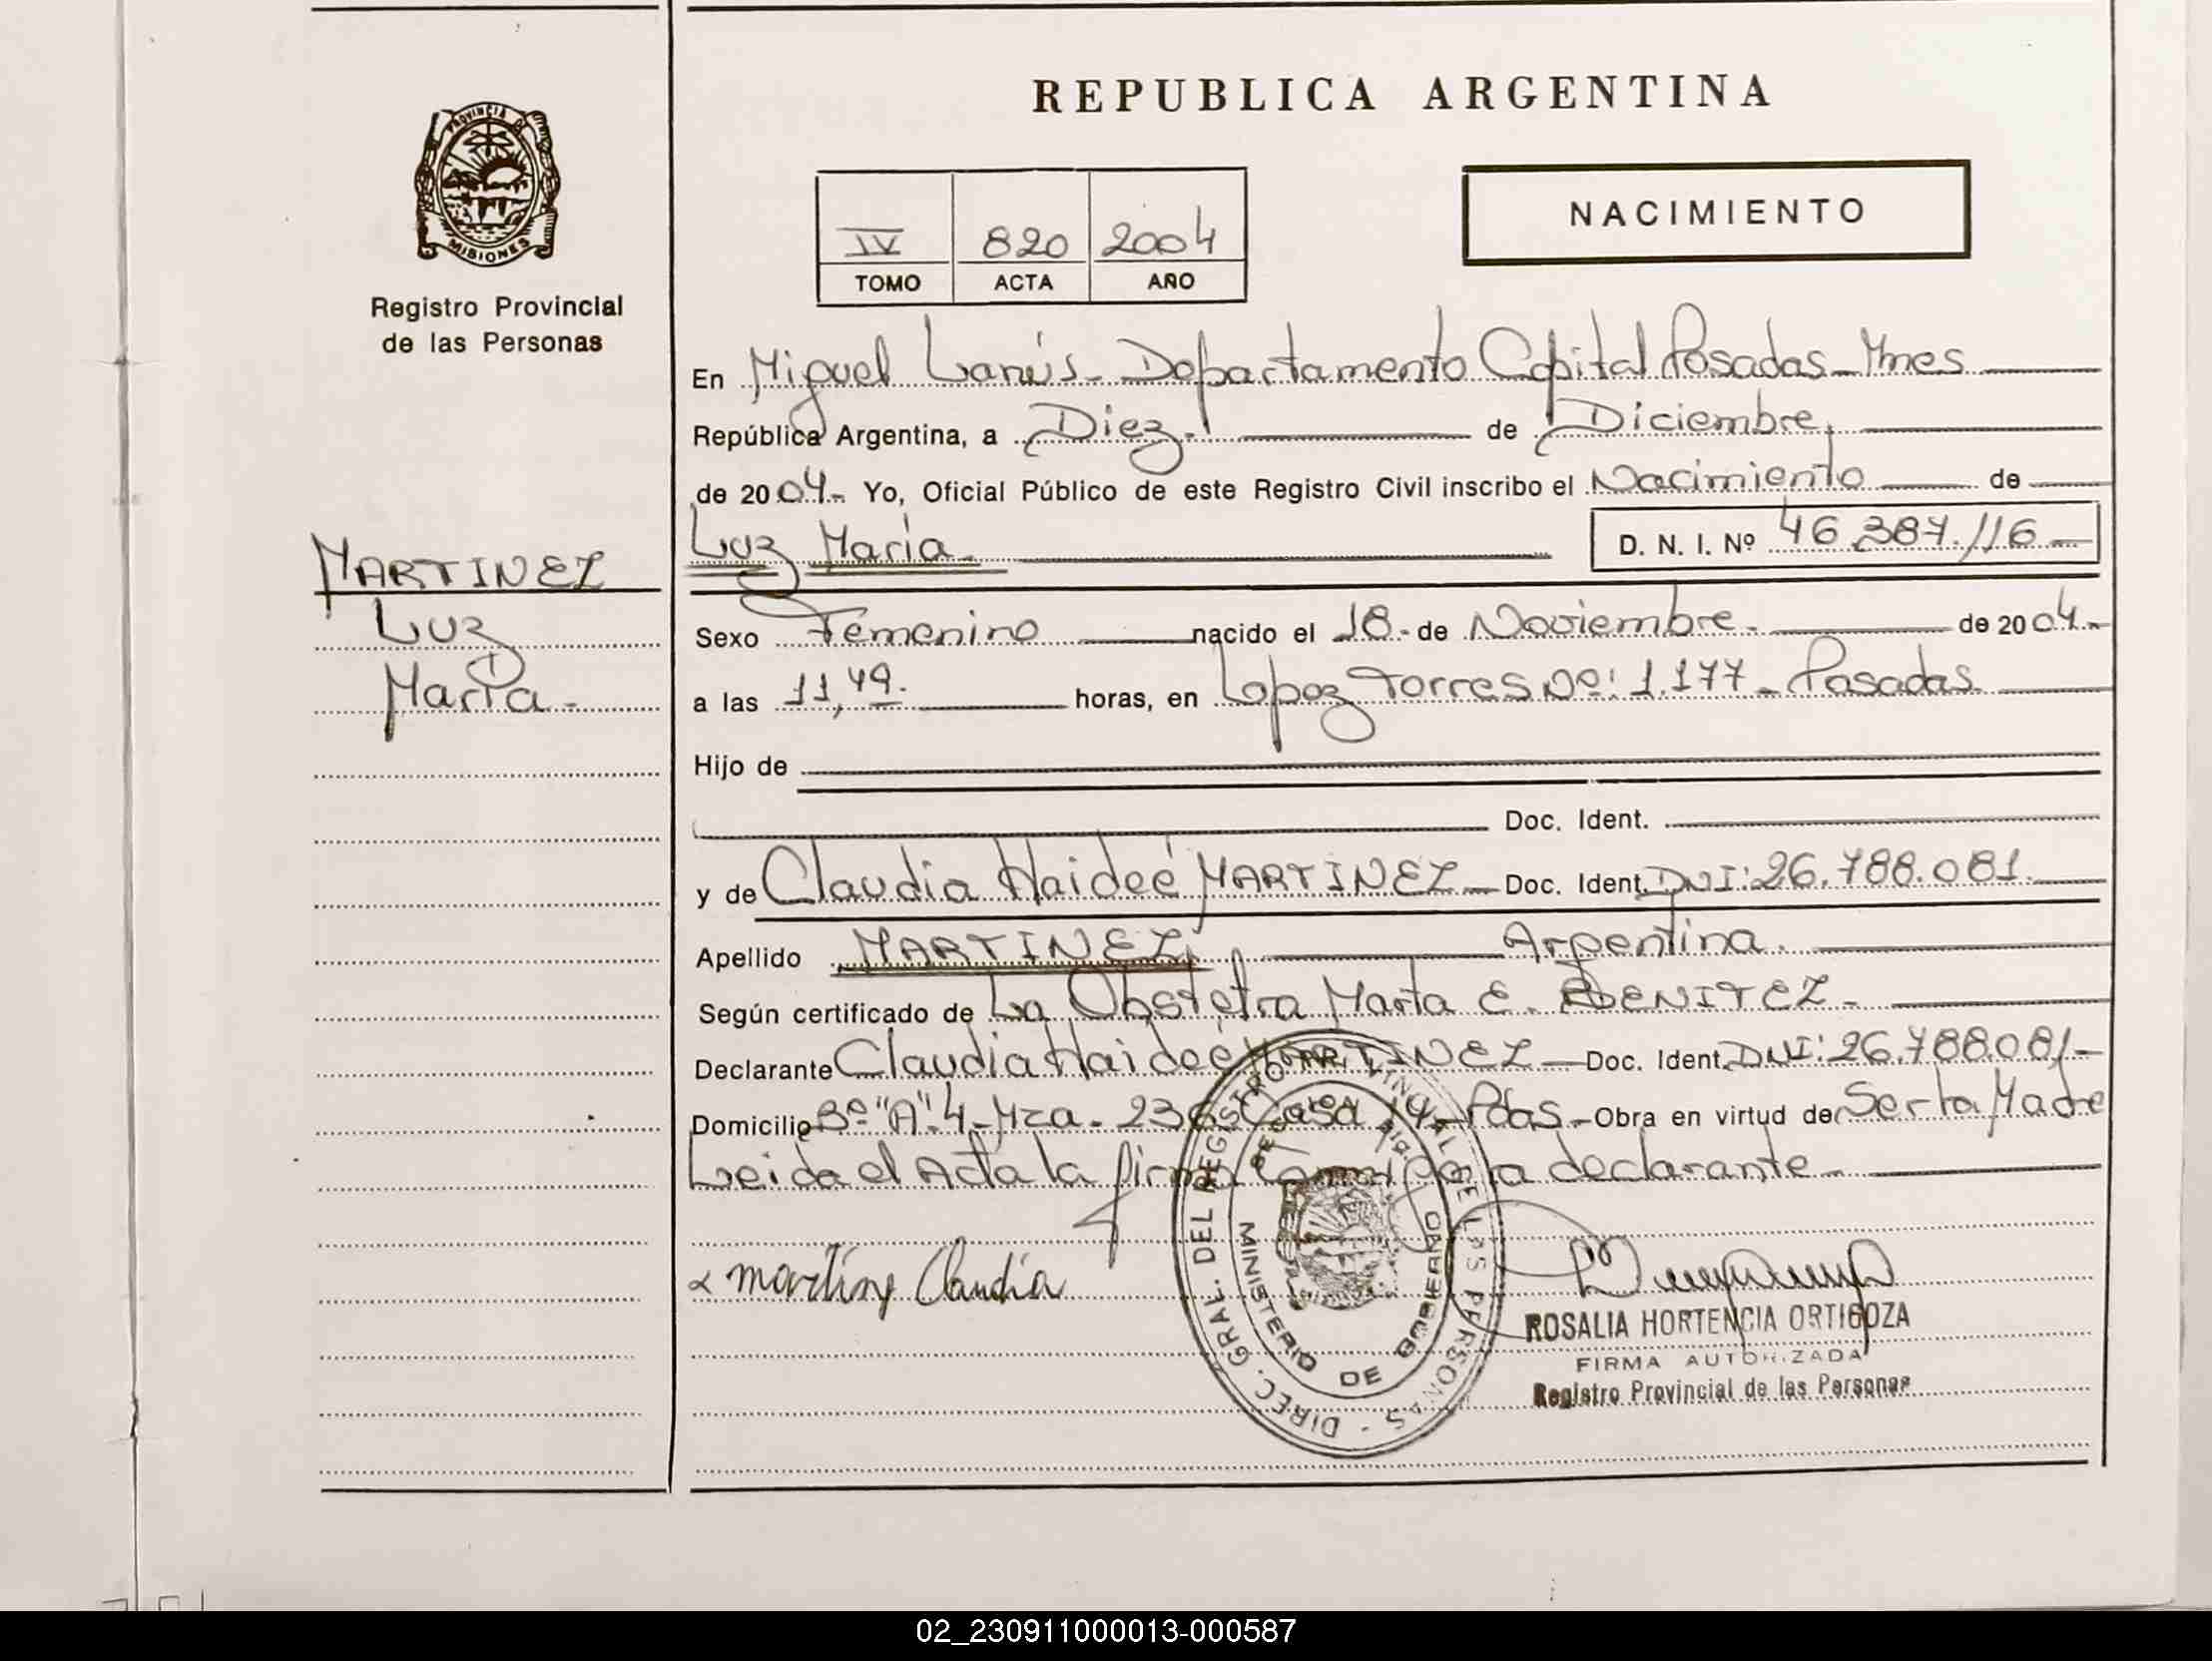 PROVINCIA DE
MISIONES
Registro Provincial
de las Personas
MARTINEZ
Luz
María.-
REPUBLICA ARGENTINA
IV 820 2004
TOMO ACTA AÑO
NACIMIENTO
En Miguel Lanús - Departamento Capital Posadas - Mnes
República Argentina, a Diez.- de Diciembre,
de 2004.- Yo, Oficial Público de este Registro Civil inscribo el Nacimiento de
Luz María - D. N. I. Nº 46.387.116.-
Sexo Femenino nacido el 18.- de Noviembre.- de 2004.-
a las 11,49. horas, en Lopez Torres Nº: 1.177 - Posadas
Hijo de
Doc. Ident.
y de Claudia Haideé MARTINEZ - Doc. Ident. DNI: 26.788.081.
Apellido MARTINEZ, Argentina.
Según certificado de La Obstetra Marta E. BENITEZ -
Declarante Claudia Haideé MARTINEZ - Doc. Ident. DNI: 26.788.081-
Domicilio Bº "A" 4 - Mza - 236 Casa 14 - Pdas - Obra en virtud de Ser la Madre
Leida el Acta la firma la declarante -
Martínez Claudia
DIREC. GRAL. DEL REGISTRO PROVINCIAL DE LAS PERSONAS -
MINISTERIO DE GOBIERNO
ROSALIA HORTENCIA ORTIGOZA
FIRMA AUTORIZADA
Registro Provincial de las Personas
02_230911000013-000587